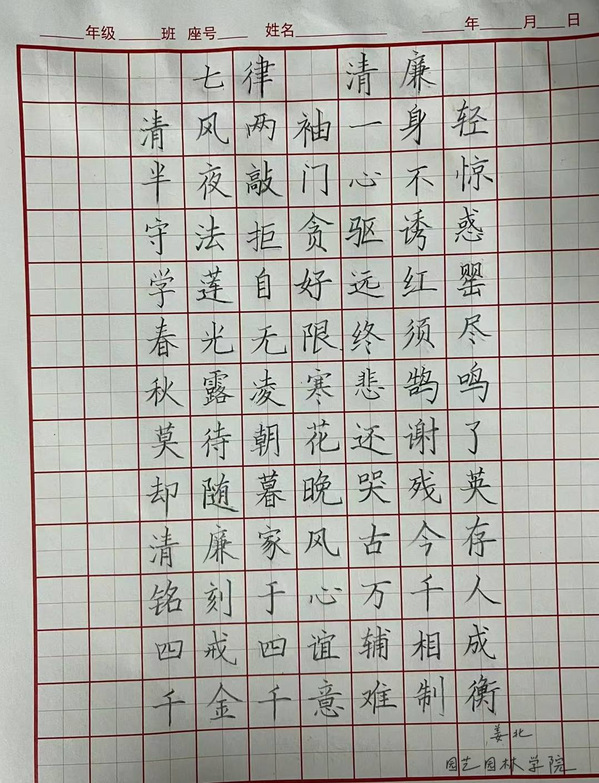 年级 班 座号 姓名 年 月 日
七律 清廉
清风两袖一身轻
半夜敲门心不惊
守法拒贪驱诱惑
学莲自好远红罂
春光无限终须尽
秋露凌寒悲鹄鸣
莫待朝花还谢了
却随暮晚哭残英
清廉家风古今存
铭刻于心万千人
四戒四谊辅相成
千金千意难制衡
姜北
园艺园林学院